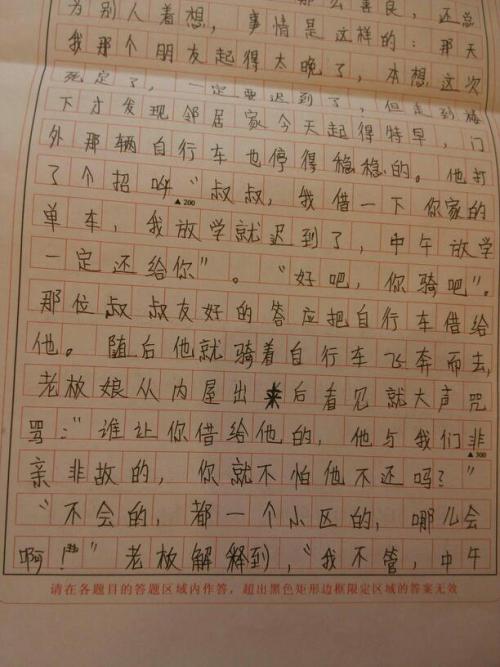 为别人着想，事情是这样的：那天
我那个朋友起得太晚了，本想这次
死定了，一定要迟到了，但走到楼
下才发现邻居家今天起得特早，门
外那辆自行车也停得稳稳的。他打
了个招呼“叔叔，我借一下你家的
▲200
单车，我放学就迟到了，中午放学
一定还给你”。“好吧，你骑吧”。
那位叔叔友好的答应把自行车借给
他。随后他就骑着自行车飞奔而去，
老板娘从内屋出来后看见就大声咒
骂：“谁让你借给他的，他与我们非
▲300
亲非故的，你就不怕他不还吗？”
“不会的，都一个小区的，哪儿会
啊！”老板解释到，“我不管，中午
请在各题目的答题区域内作答，超出黑色矩形边框限定区域的答案无效